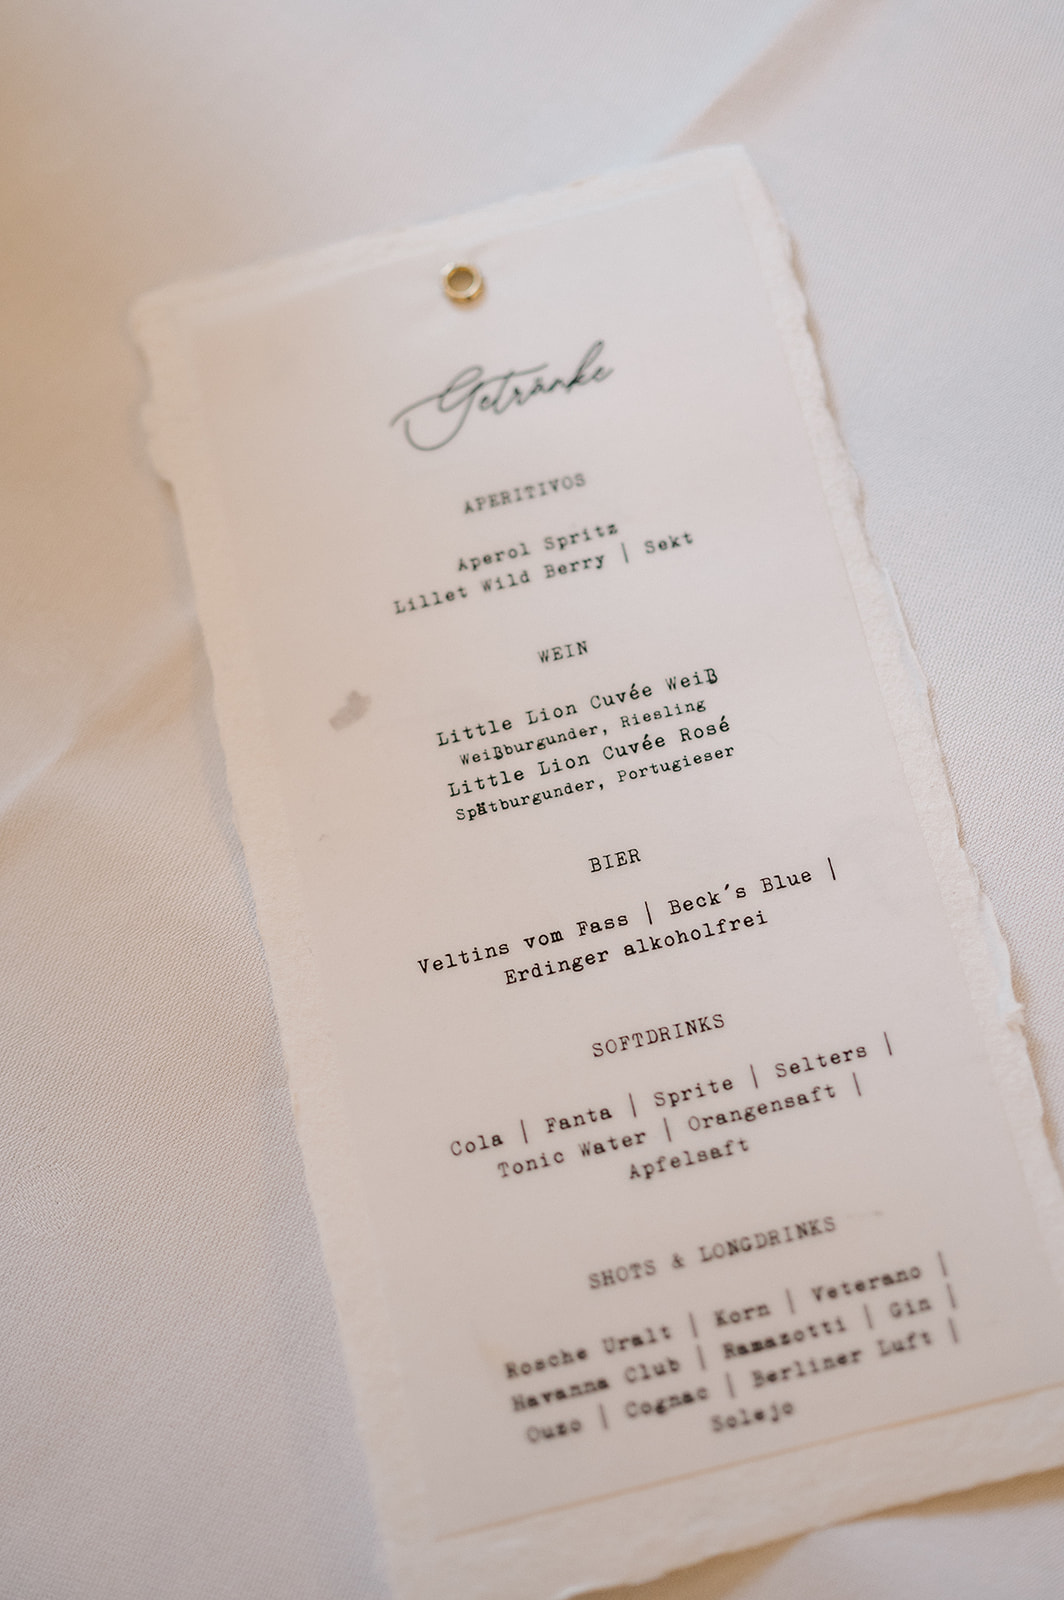 Getränke
APERITIVOS
Aperol Spritz
Lillet Wild Berry | Sekt
WEIN
Little Lion Cuvée Weiß
Weißburgunder, Riesling
Little Lion Cuvée Rosé
Spätburgunder, Portugieser
BIER
Veltins vom Fass | Beck's Blue |
Erdinger alkoholfrei
SOFTDRINKS
Cola | Fanta | Sprite | Selters |
Tonic Water | Orangensaft |
Apfelsaft
SHOTS & LONGDRINKS
Rosche Uralt | Korn | Veterano |
Havanna Club | Ramazotti | Gin |
Ouzo | Cognac | Berliner Luft |
Solejo